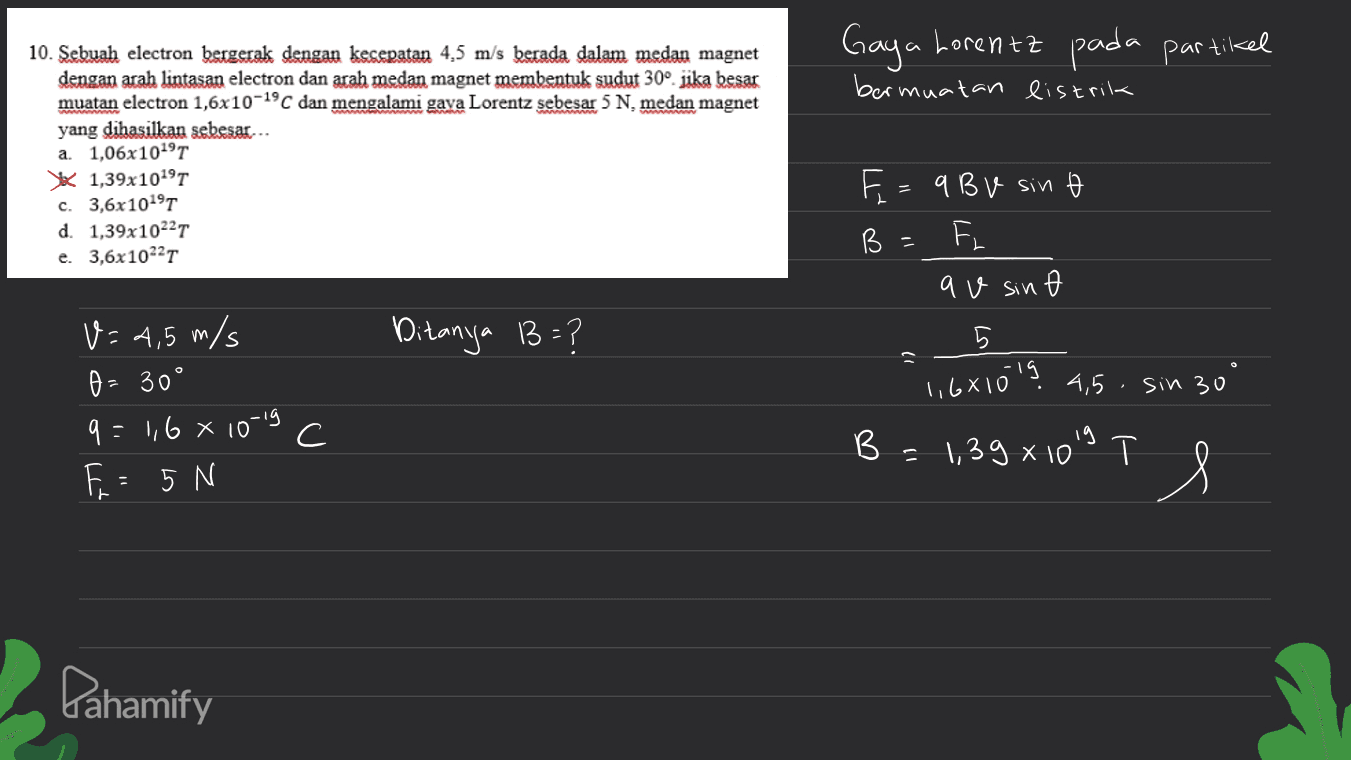 10. Sebuah electron bergerak dengan kecepatan 4,5 m/s berada dalam medan magnet
dengan arah lintasan electron dan arah medan magnet membentuk sudut 30⁰. jika besar
muatan electron 1,6x10⁻¹⁹C dan mengalami gaya Lorentz sebesar 5 N, medan magnet
yang dihasilkan sebesar...
a. 1,06x10¹⁹T
b. 1,39x10¹⁹T
c. 3,6x10¹⁹T
d. 1,39x10²²T
e. 3,6x10²²T
V = 4,5 m/s
θ = 30°
q = 1,6 × 10⁻¹⁹ C
F_L = 5 N
Ditanya B = ?
Gaya Lorentz pada partikel
bermuatan listrik
F_L = q B v sin θ
B = F_L
q v sin θ
= 5
1,6×10⁻¹⁹ . 4,5 . sin 30°
B = 1,39 × 10¹⁹ T
Pahamify